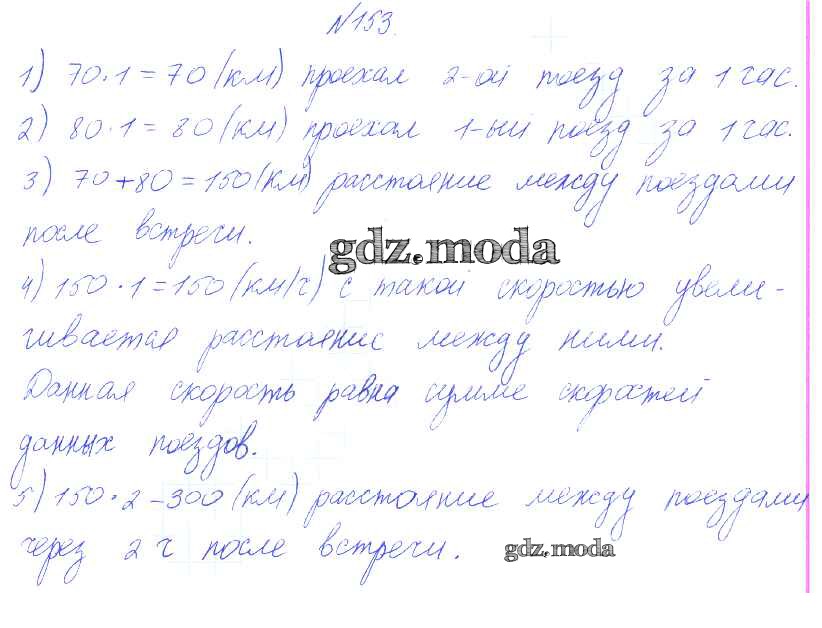 №153.
1) 70·1=70 (км) проехал 2-ой поезд за 1 час.
2) 80·1=80 (км) проехал 1-ый поезд за 1 час.
3) 70+80=150 (км) расстояние между поездами
после встречи.
gdz.moda
4) 150·1=150 (км/ч) с такой скоростью увели-
чивается расстояние между ними.
Данная скорость равна сумме скоростей
данных поездов.
5) 150·2-300 (км) расстояние между поездами
через 2 ч после встречи.
gdz.moda